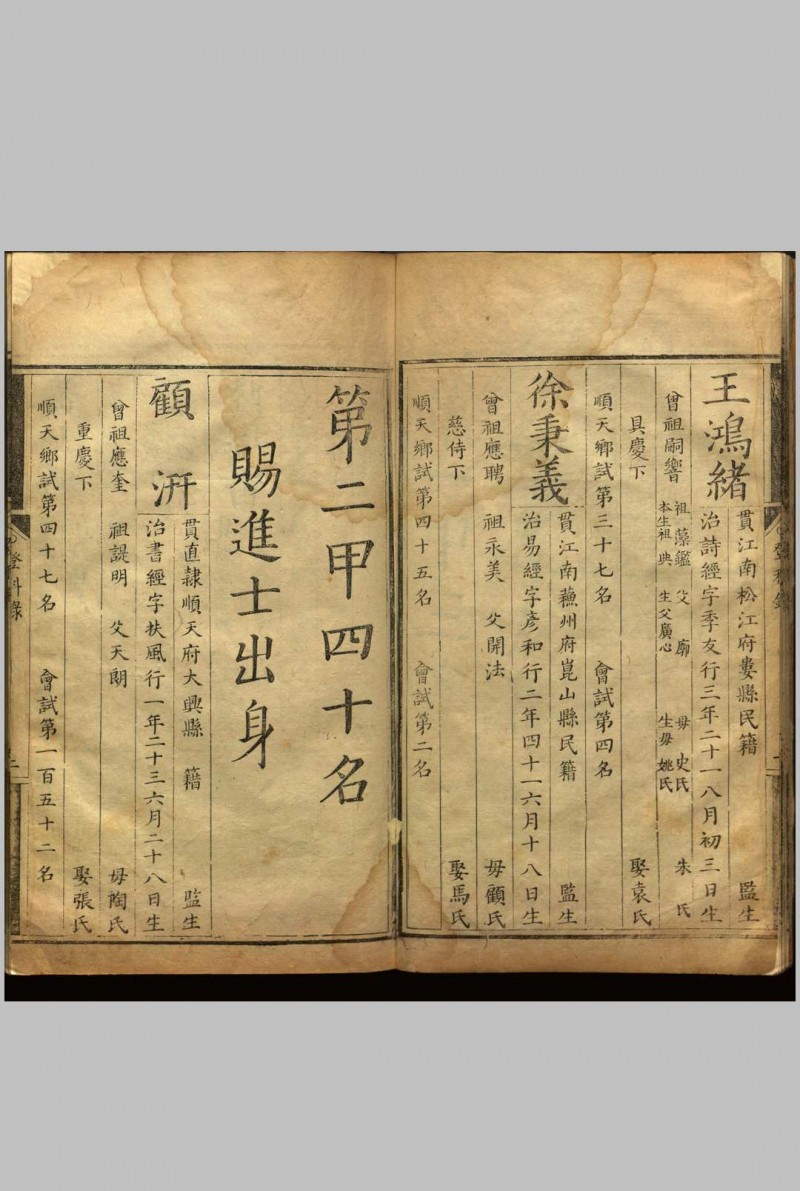 王鴻緒
貫江南松江府婁縣民籍 監生
治詩經字季友行三年二十一八月初三日生
曾祖嗣響 祖藻鑑 父廓 母史氏 朱氏
本生祖典 生父廣心 生母姚氏
具慶下 娶袁氏
順天鄉試第三十七名 會試第四名
徐秉義
貫江南蘓州府崑山縣民籍 監生
治易經字彥和行二年四十一六月十八日生
曾祖應聘 祖永美 父開法 母顧氏
慈侍下 娶馬氏
順天鄉試第四十五名 會試第二名
第二甲四十名
賜進士出身
顧汧
貫直隷順天府大興縣 籍 監生
治書經字扶風行一年二十三六月二十八日生
曾祖應奎 祖諟明 父天朗 母陶氏
重慶下 娶張氏
順天鄉試第四十七名 會試第一百五十二名
登科錄